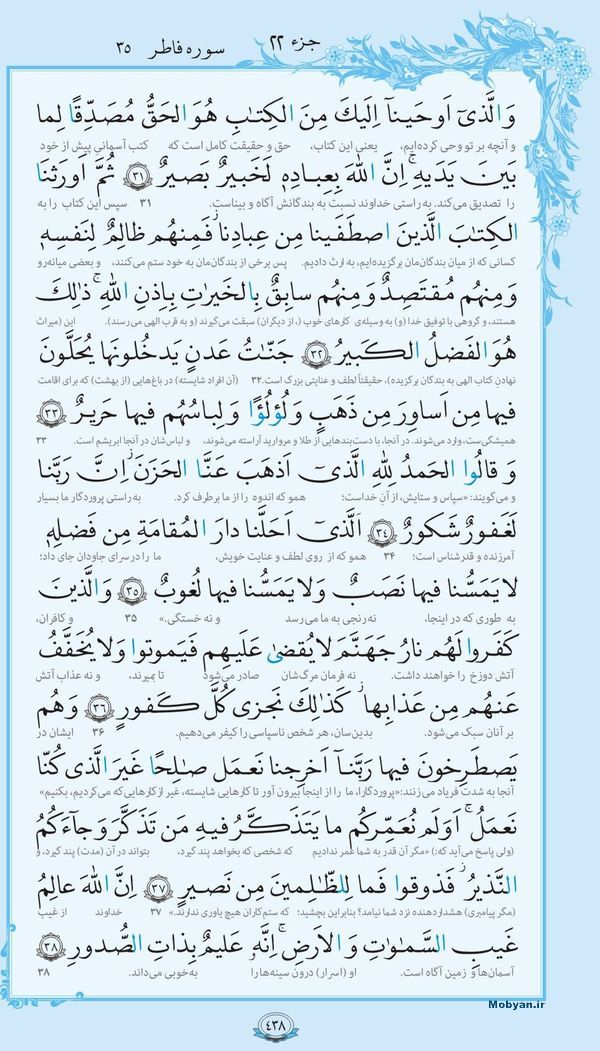 جزء ۲۲ سوره فاطر ۳۵
وَ الَّذی اَوحَینا اِلَیكَ مِنَ الكِتابِ هُوَ الحَقُّ مُصَدِّقًا لِما
و آنچه بر تو وحی کرده‌ایم، یعنی این کتاب، حق و حقیقت کامل است که کتب آسمانی پیش از خود
بَینَ یَدَیهِ ۚ اِنَّ اللّهَ بِعِبادِه لَخَبیرٌ بَصیرٌ ﴿۳۱﴾ ثُمَّ اَورَثنَا
را تصدیق می‌کند. به راستی خداوند نسبت به بندگانش آگاه و بیناست. ۳۱ سپس این کتاب را به
الكِتابَ الَّذینَ اصطَفَینا مِن عِبادِنا ۖ فَمِنهُم ظالِمٌ لِنَفسِه
کسانی که از میان بندگان‌مان برگزیده‌ایم، به ارث دادیم. پس برخی از بندگان‌مان به خود ستم می‌کنند، و بعضی میانه‌رو
وَ مِنهُم مُقتَصِدٌ وَ مِنهُم سابِقٌ بِالخَیراتِ بِاِذنِ اللّهِ ۚ ذلِكَ
هستند، و گروهی با توفیق خدا (و) به وسیله‌ی کارهای خوب (، از دیگران) سبقت می‌گیرند (و به قرب الهی می‌رسند). این (میراث
هُوَ الفَضلُ الكَبیرُ ﴿۳۲﴾ جَنّاتُ عَدنٍ یَدخُلونَها یُحَلَّونَ
نهادن کتاب الهی به بندگان برگزیده)، حقیقتاً لطف و عنایتی بزرگ است. ۳۲ (آن افراد شایسته) در باغ‌هایی (از بهشت) که برای اقامت
فیها مِن اَساوِرَ مِن ذَهَبٍ وَ لُؤلُؤًا ۖ وَ لِباسُهُم فیها حَریرٌ ﴿۳۳﴾
همیشگی‌ست، وارد می‌شوند. در آنجا، با دست‌بندهایی از طلا و مروارید آراسته می‌شوند، و لباس‌شان در آنجا ابریشم است. ۳۳
وَ قالُوا الحَمدُ لِلّهِ الَّذی اَذهَبَ عَنَّا الحَزَنَ ۖ اِنَّ رَبَّنا
و می‌گویند: «سپاس و ستایش، از آنِ خداست؛ همو که اندوه را از ما برطرف کرد. به راستی پروردگار ما بسیار
لَغَفورٌ شَكورٌ ﴿۳۴﴾ اَلَّذی اَحَلَّنا دارَ المُقامَةِ مِن فَضلِه
آمرزنده و قدرشناس است؛ ۳۴ همو که از روی لطف و عنایت خویش، ما را در سرای جاودان جای داد؛
لا یَمَسُّنا فیها نَصَبٌ وَ لا یَمَسُّنا فیها لُغوبٌ ﴿۳۵﴾ وَ الَّذینَ
به طوری که در اینجا، نه رنجی به ما می‌رسد و نه خستگی.» ۳۵ و کافران،
كَفَروا لَهُم نارُ جَهَنَّمَ لا یُقضی عَلَیهِم فَیَموتوا وَ لا یُخَفَّفُ
آتش دوزخ را خواهند داشت. نه فرمان مرگ‌شان صادر می‌شود تا بمیرند، و نه عذاب آتش
عَنهُم مِن عَذابِها ۚ كَذلِكَ نَجزی كُلَّ كَفورٍ ﴿۳۶﴾ وَ هُم
بر آنان سبک می‌شود. بدین‌سان، هر شخص ناسپاسی را کیفر می‌دهیم. ۳۶ ایشان در
یَصطَرِخونَ فیها رَبَّنا اَخرِجنا نَعمَل صالِحًا غَیرَ الَّذی كُنّا
آنجا به شدت فریاد می‌زنند: «پروردگارا، ما را از اینجا بیرون آور تا کارهایی شایسته، غیر از کارهایی که می‌کردیم، بکنیم»
نَعمَلُ ۚ اَوَ لَم نُعَمِّركُم ما یَتَذَكَّرُ فیهِ مَن تَذَكَّرَ وَ جاءَكُمُ
(ولی پاسخ می‌آید که:) «مگر آن قدر به شما عمر ندادیم که شخصی که بخواهد پند گیرد، بتواند در آن (مدت) پند گیرد، و
النَّذیرُ ۖ فَذوقوا فَما لِلظّالِمینَ مِن نَصیرٍ ﴿۳۷﴾ اِنَّ اللّهَ عالِمُ
(مگر پیامبری) هشداردهنده نزد شما نیامد؟ بنابراین بچشید؛ که ستم‌کاران هیچ یاوری ندارند.» ۳۷ خداوند از غیب
غَیبِ السَّماواتِ وَ الاَرضِ ۚ اِنَّه عَلیمٌ بِذاتِ الصُّدورِ ﴿۳۸﴾
آسمان‌ها و زمین آگاه است. او (اسرار) درون سینه‌ها را به‌خوبی می‌داند. ۳۸
Mobyan.ir
۴۳۸